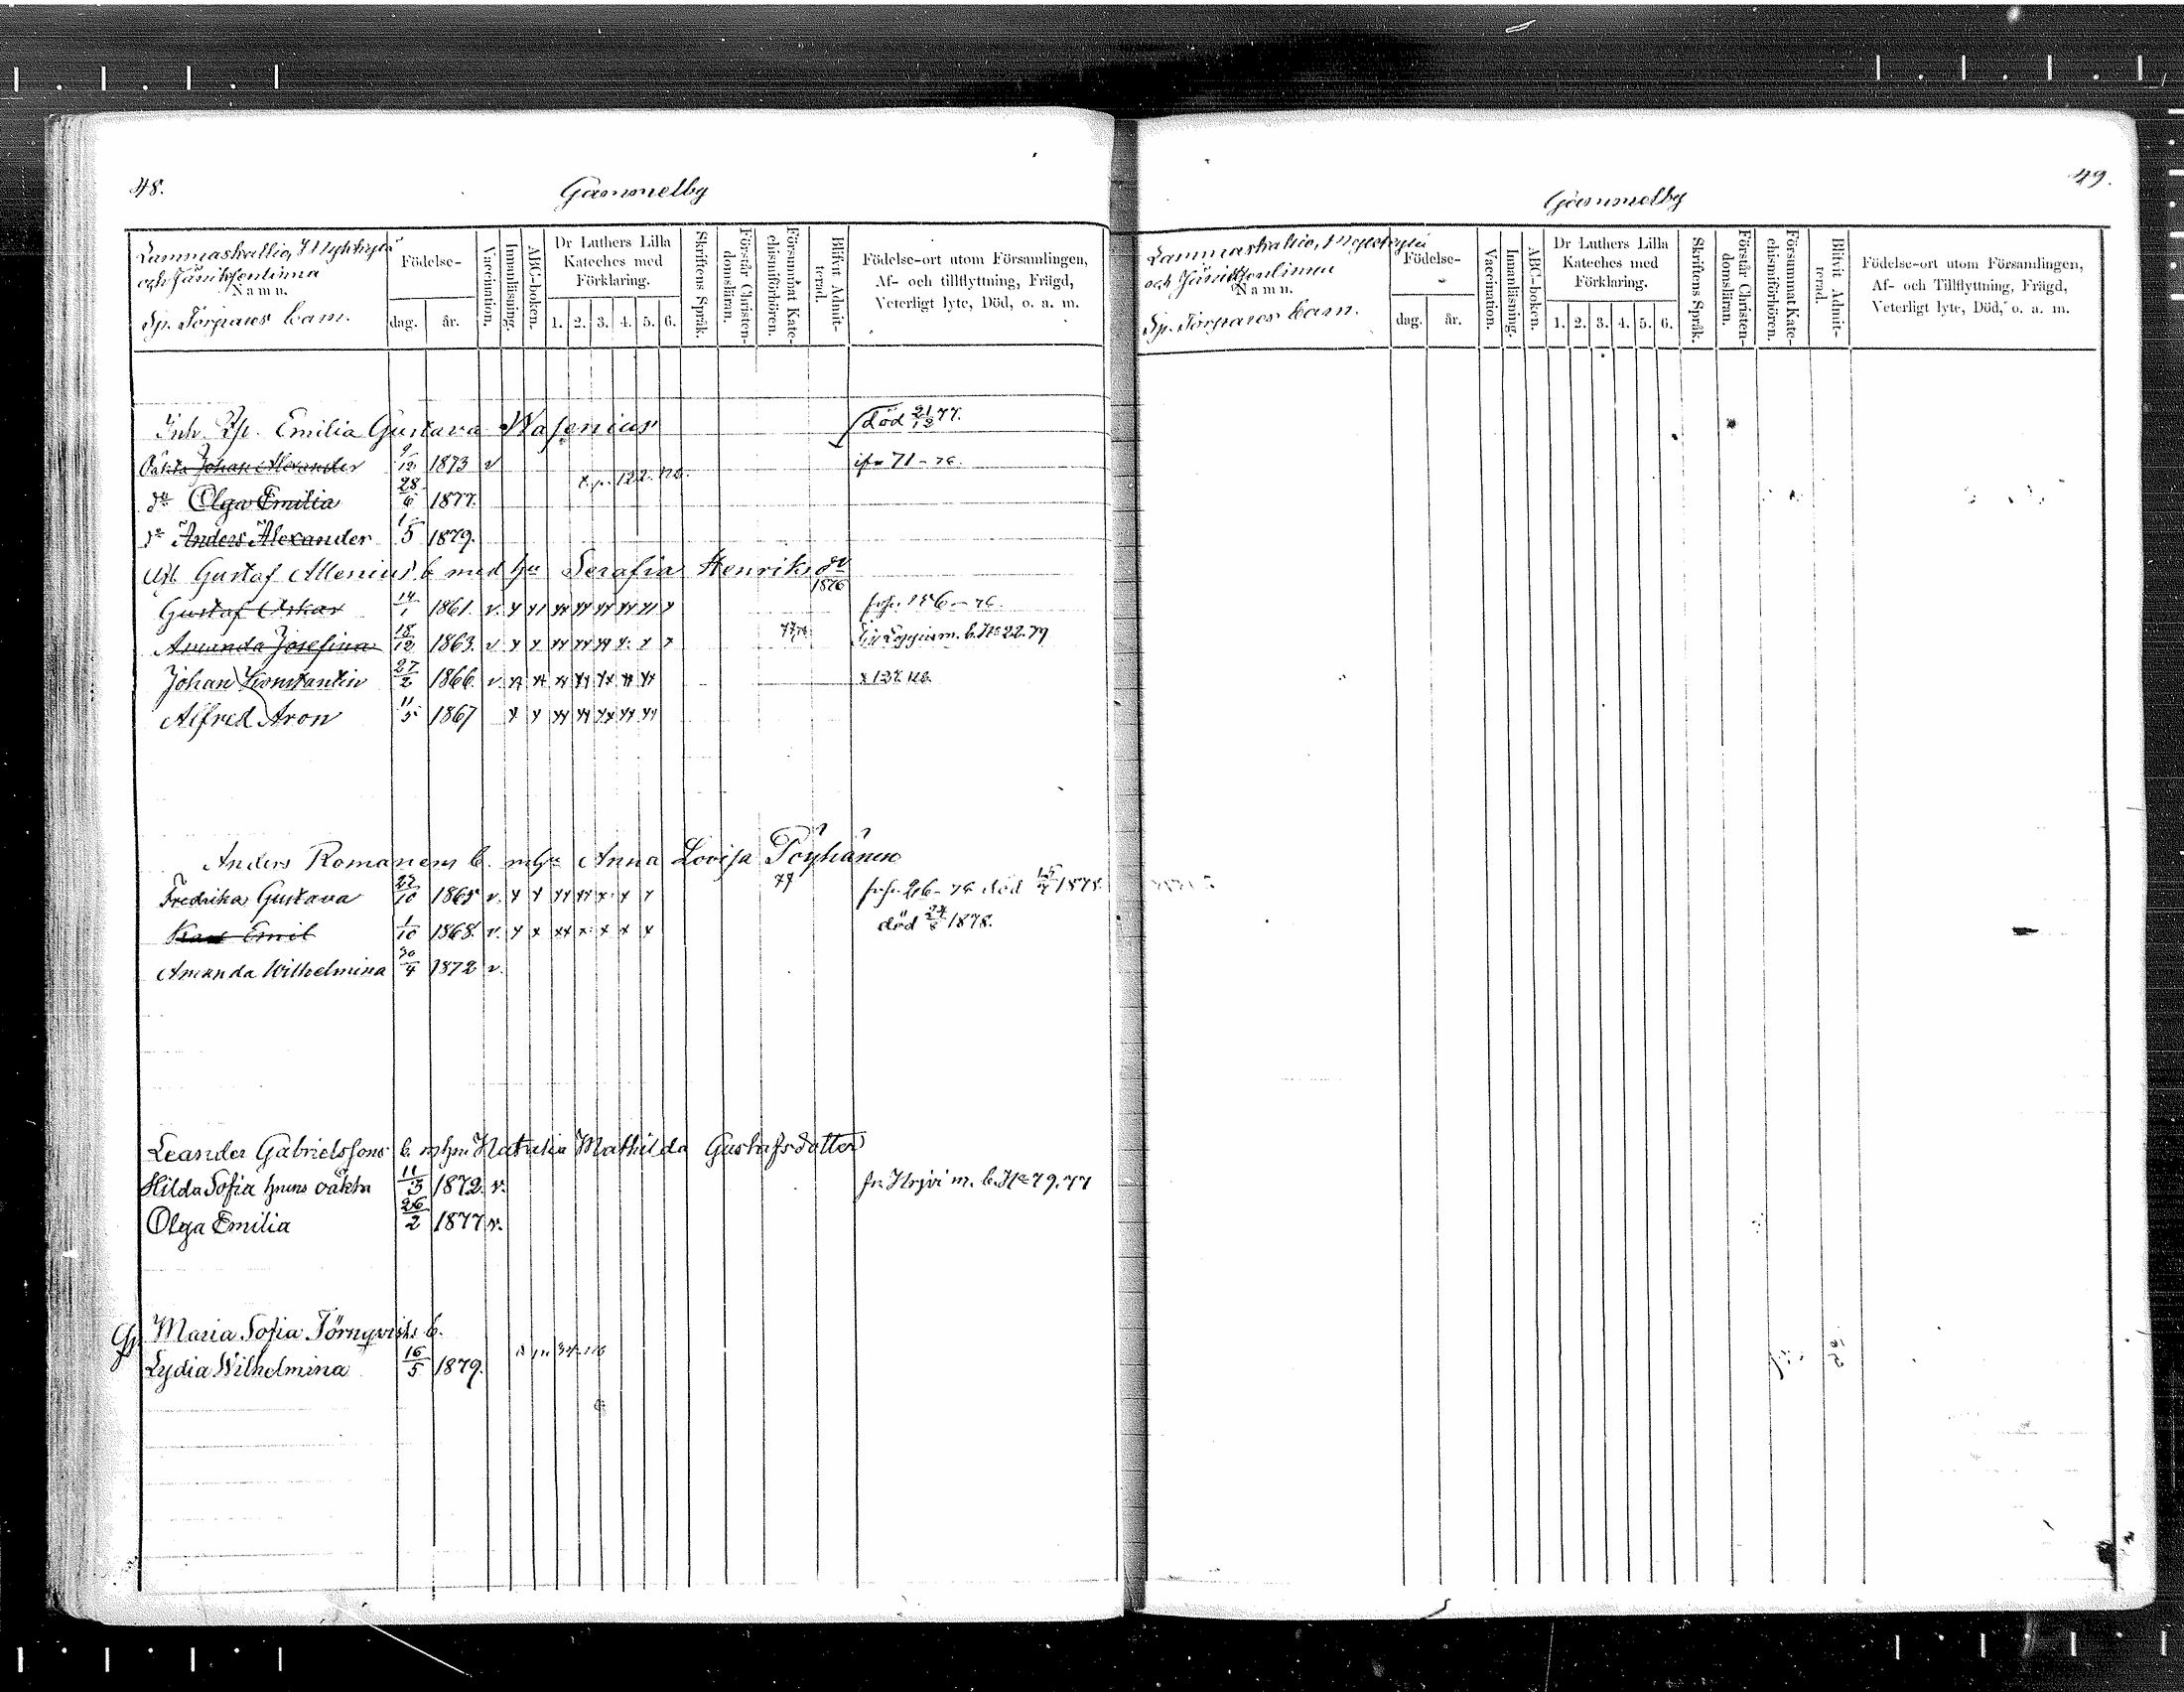 48.
Gammelby
Lammaskallio,
och
Namn.
Sp. Torpares barn.
Födelse-
dag. år.
Vaccination.
Innanläsning.
ABC-boken.
Dr Luthers Lilla Kateches med Förklaring.
1. 2. 3. 4. 5. 6.
Skriftens Språk.
Förstår Christendomsläran.
Försummat Katechismiförhören.
Blifvit Admitterad.
Födelse-ort utom Församlingen,
Af- och tillflyttning, Frägd,
Veterligt lyte, Död, o. a. m.
Inh. Emilia Gustava Wasenius
död 21/12 77.
oäkta Johan Alexander 9/12 1873 v 71-76.
do Olga Emilia 28/6 1877.
do Anders Alexander 1/5 1879.
Gustaf Allenius b med hu Serafia Henriksdr
1876
Gustaf Oskar 14/1 1861. v. x xx xx xx xx xx x
Amanda Josefina 18/12 1863. v x x xx xx xx x x x m. b. No 22. 79
Johan Konstantin 27/2 1866. v. xx xx xx xx xx xx xx
Alfred Aron 11/5 1867 x x xx xx xx xx xx
Anders Romanens b. m hu Anna Lovisa Pöyhänen
77
Fredrika Gustava 27/10 1865 v. x x xx xx x x x död 15/7 1878.
Karl Emil 1/10 1868. v. x x xx x x x x död 1878.
Amanda Wilhelmina 30/4 1872 v.
Leander Gabrielssons b. m hu Natalia Mathilda Gustafsdotter
Hilda Sofia hruns oäkta 11/3 1872. v. m. b. No 79. 77
Olga Emilia 26/2 1877 v.
Maria Sofia Törnqvists b.
Lydia Wilhelmina 16/5 1879.
49.
Gammelby
Lammaskallio,
och
Namn.
Sp. Torpares barn.
Födelse-
dag. år.
Vaccination.
Innanläsning.
ABC-boken.
Dr Luthers Lilla Kateches med Förklaring.
1. 2. 3. 4. 5. 6.
Skriftens Språk.
Förstår Christendomsläran.
Försummat Katechismiförhören.
Blifvit Admitterad.
Födelse-ort utom Församlingen,
Af- och Tillflyttning, Frägd,
Veterligt lyte, Död, o. a. m.